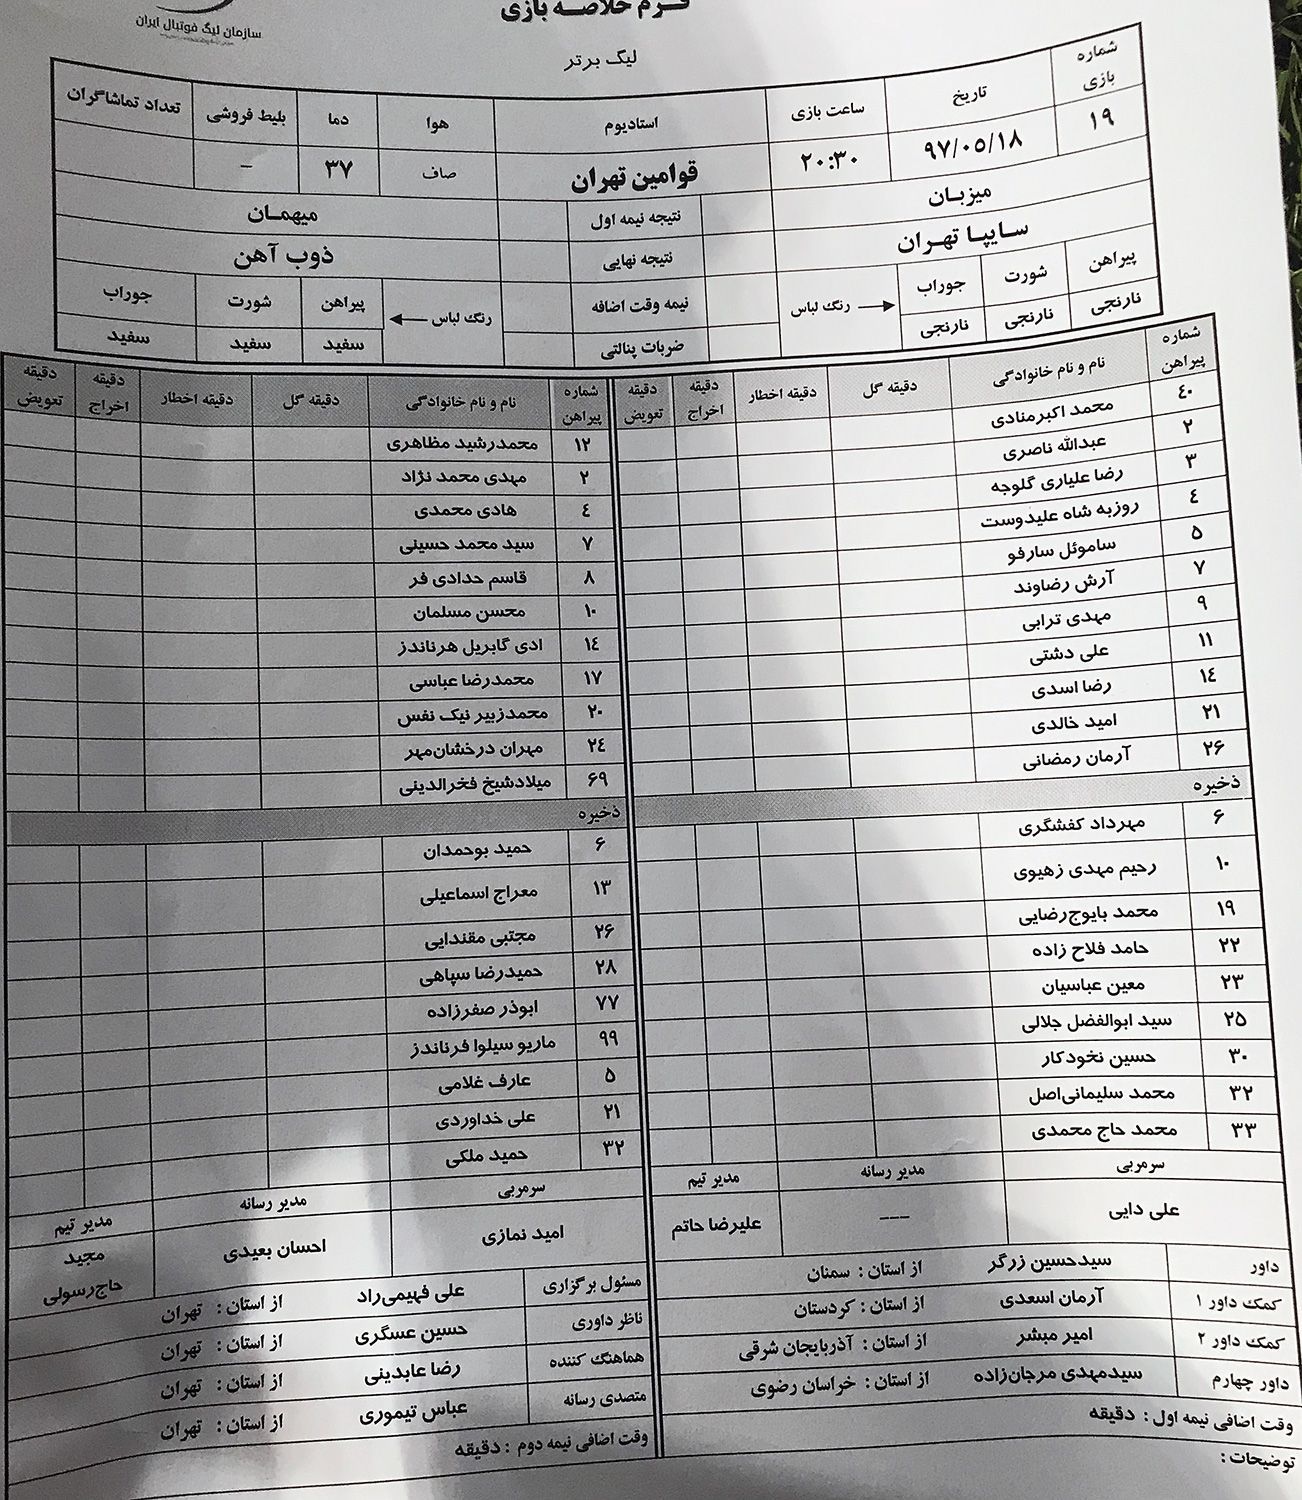 سازمان لیگ فوتبال ایران
فرم خلاصه بازی
لیگ برتر
شماره بازی تاریخ ساعت بازی استادیوم هوا دما بلیط فروشی تعداد تماشاگران
۱۹ ۹۷/۰۵/۱۸ ۲۰:۳۰ قوامین تهران صاف ۳۷ –
میزبان نتیجه نیمه اول میهمان
سایپا تهران نتیجه نهایی ذوب آهن
پیراهن شورت جوراب رنگ لباس نیمه وقت اضافه رنگ لباس پیراهن شورت جوراب
نارنجی نارنجی نارنجی ضربات پنالتی سفید سفید سفید
شماره پیراهن نام و نام خانوادگی دقیقه گل دقیقه اخطار دقیقه اخراج دقیقه تعویض
۴۰ محمد اکبرمنادی
۲ عبدالله ناصری
۳ رضا علیاری گلوجه
۴ روزبه شاه علیدوست
۵ ساموئل سارفو
۷ آرش رضاوند
۹ مهدی ترابی
۱۱ علی دشتی
۱۴ رضا اسدی
۲۱ امید خالدی
۲۶ آرمان رمضانی
ذخیره
۶ مهرداد کفشگری
۱۰ رحیم مهدی زهیوی
۱۹ محمد بایوج‌رضایی
۲۲ حامد فلاح زاده
۲۳ معین عباسیان
۲۵ سید ابوالفضل جلالی
۳۰ حسین نخودکار
۳۲ محمد سلیمانی‌اصل
۳۳ محمد حاج محمدی
سرمربی مدیر رسانه مدیر تیم
علی دایی --- علیرضا حاتم
داور سیدحسین زرگر از استان : سمنان
کمک داور ۱ آرمان اسعدی از استان : کردستان
کمک داور ۲ امیر مبشر از استان : آذربایجان شرقی
داور چهارم سیدمهدی مرجان‌زاده از استان : خراسان رضوی
وقت اضافی نیمه اول : دقیقه
توضیحات :
شماره پیراهن نام و نام خانوادگی دقیقه گل دقیقه اخطار دقیقه اخراج دقیقه تعویض
۱۲ محمدرشید مظاهری
۲ مهدی محمد نژاد
۴ هادی محمدی
۷ سید محمد حسینی
۸ قاسم حدادی فر
۱۰ محسن مسلمان
۱۴ ادی گابریل هرناندز
۱۷ محمدرضا عباسی
۲۰ محمدزبیر نیک نفس
۲۴ مهران درخشان‌مهر
۶۹ میلادشیخ فخرالدینی
ذخیره
۶ حمید بوحمدان
۱۳ معراج اسماعیلی
۲۶ مجتبی مقندایی
۲۸ حمیدرضا سپاهی
۷۷ ابوذر صفرزاده
۹۹ ماریو سیلوا فرناندز
۵ عارف غلامی
۲۱ علی خداوردی
۳۲ حمید ملکی
سرمربی مدیر رسانه مدیر تیم
امید نمازی احسان بعیدی مجید حاج‌رسولی
مسئول برگزاری علی فهیمی‌راد از استان : تهران
ناظر داوری حسین عسگری از استان : تهران
هماهنگ کننده رضا عابدینی از استان : تهران
متصدی رسانه عباس تیموری از استان : تهران
وقت اضافی نیمه دوم : دقیقه